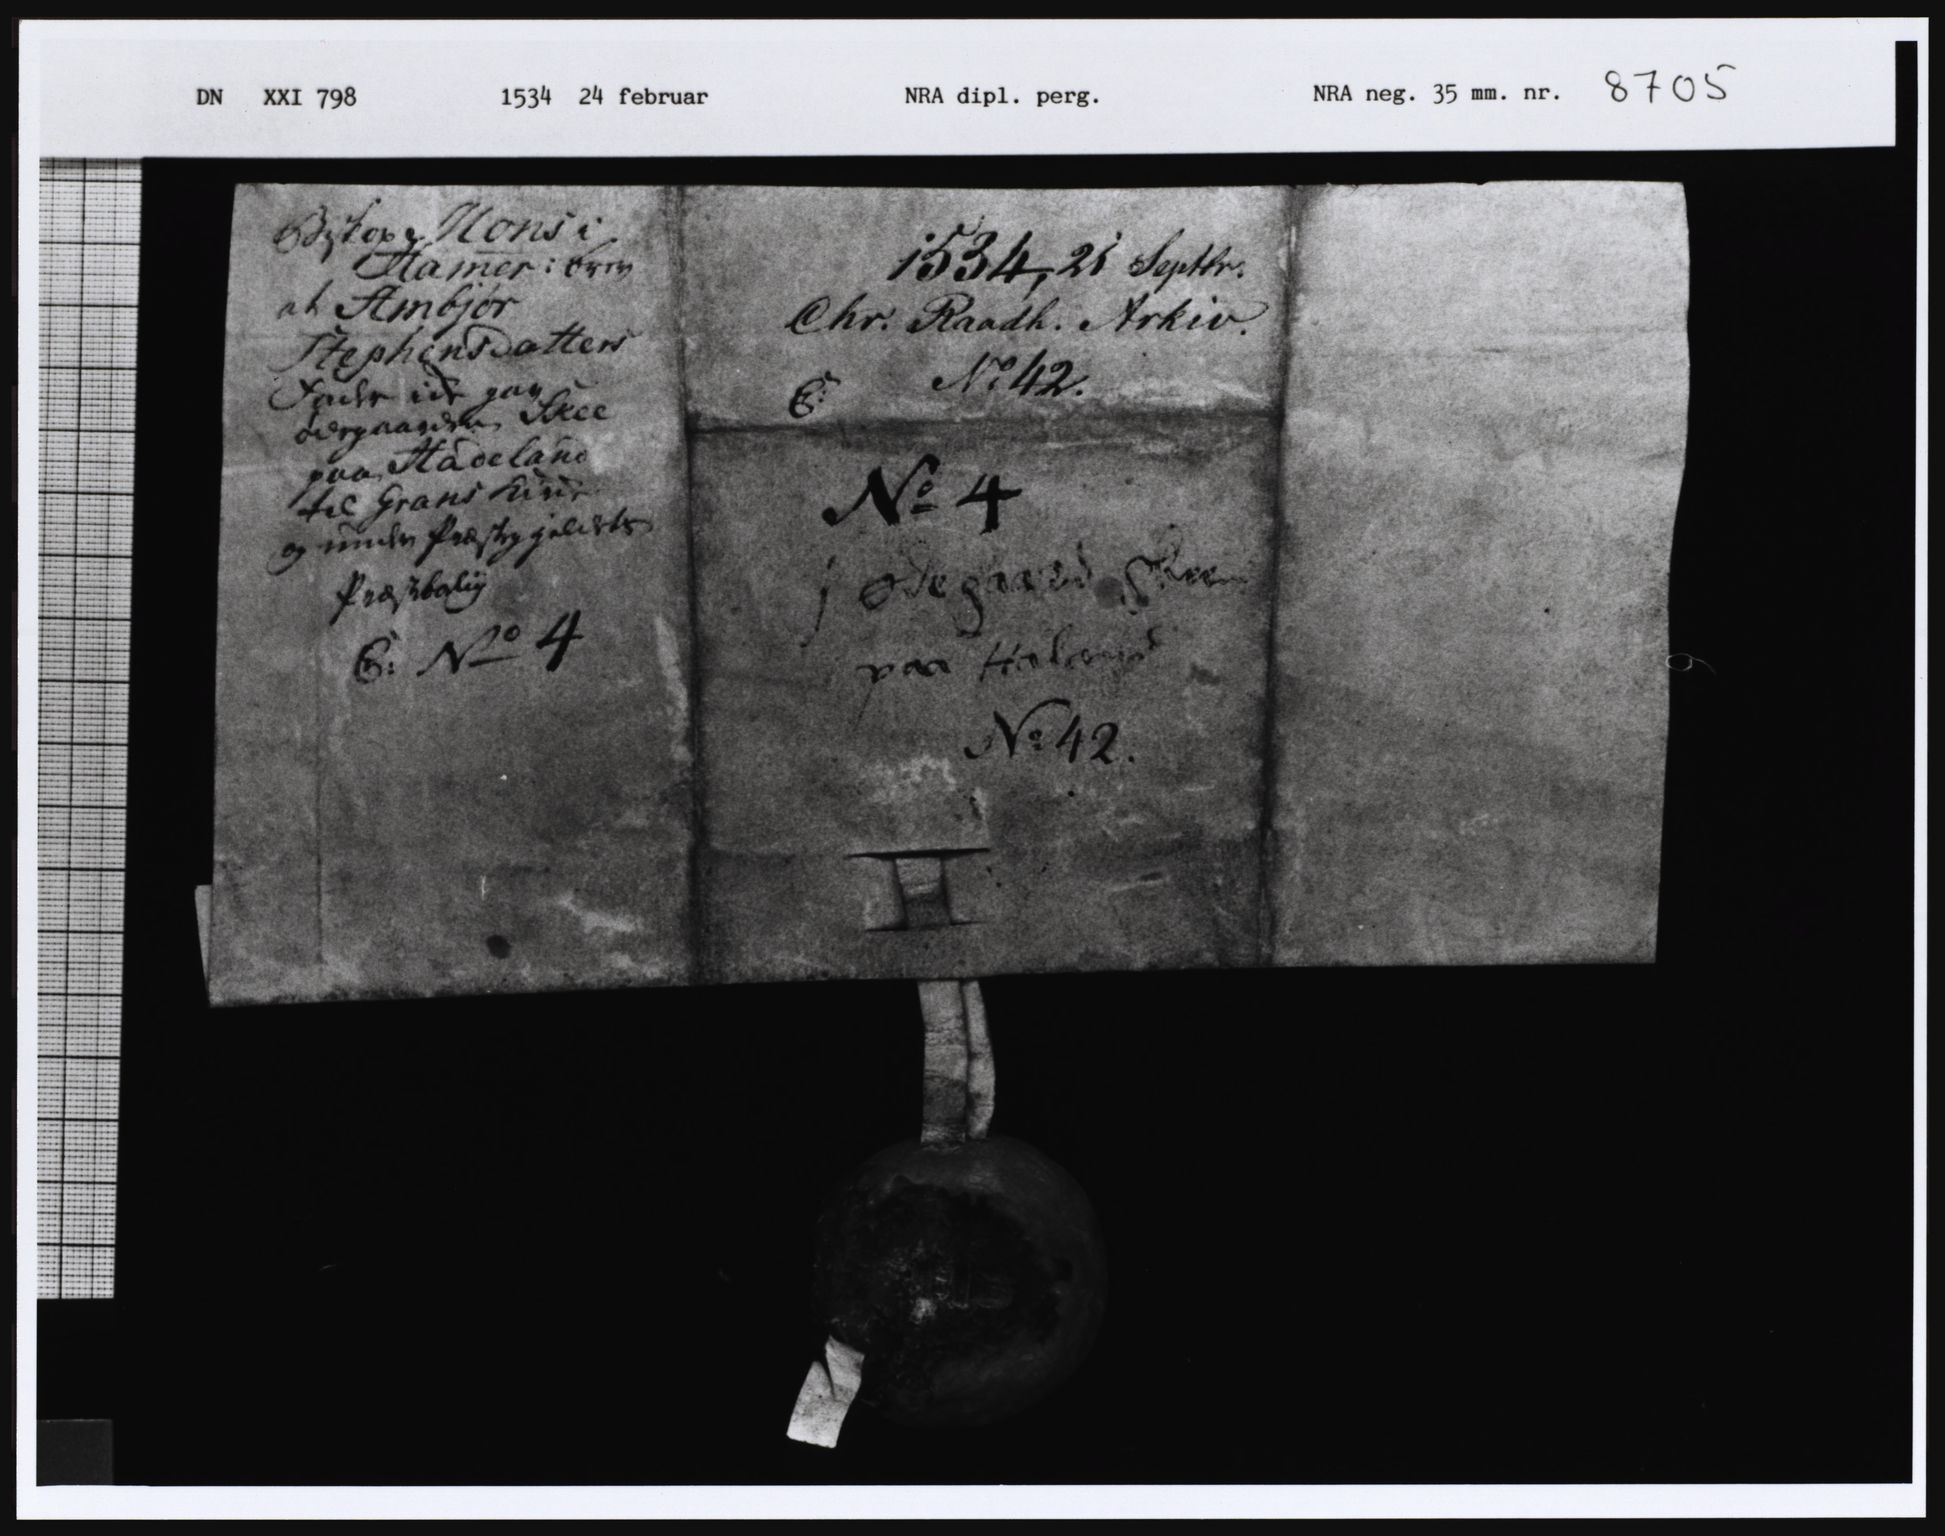 DN XXI 798 1534 24 februar NRA dipl. perg. NRA neg. 35 mm. nr. 8705
Biskops Mons i
Hamer: brev
at Ambjør
Stephensdatters
Fader
ødegaarden Skee
paa Hadeland
til Grans
og under Præstegieldets
Præstbolig
E: No 4
1534, 21 Septbr.
Chr. Raadh. Arkiv.
E: No 42.
No 4
j ødegaard Skee
paa
No 42.